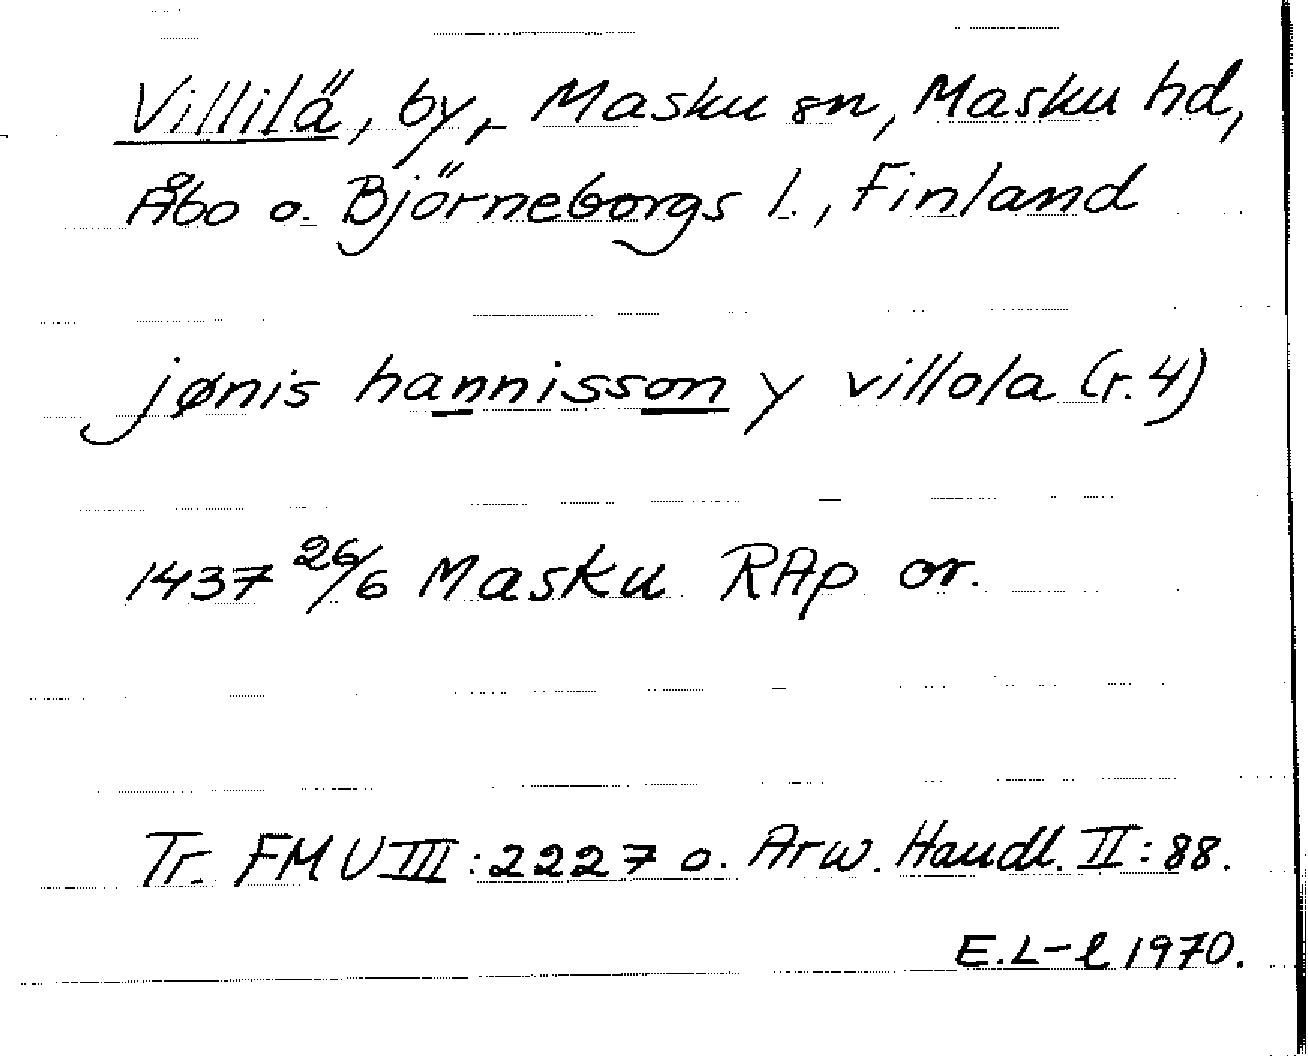 Villilä, by, Masku sn, Masku hd,
Åbo o. Björneborgs l., Finland
jønis hannisson y villola (r. 4)
1437 26/6 Masku RAp or.
Tr. FMU III: 2227 o. Arw. Handl. II: 88.
E. L-l 1970.